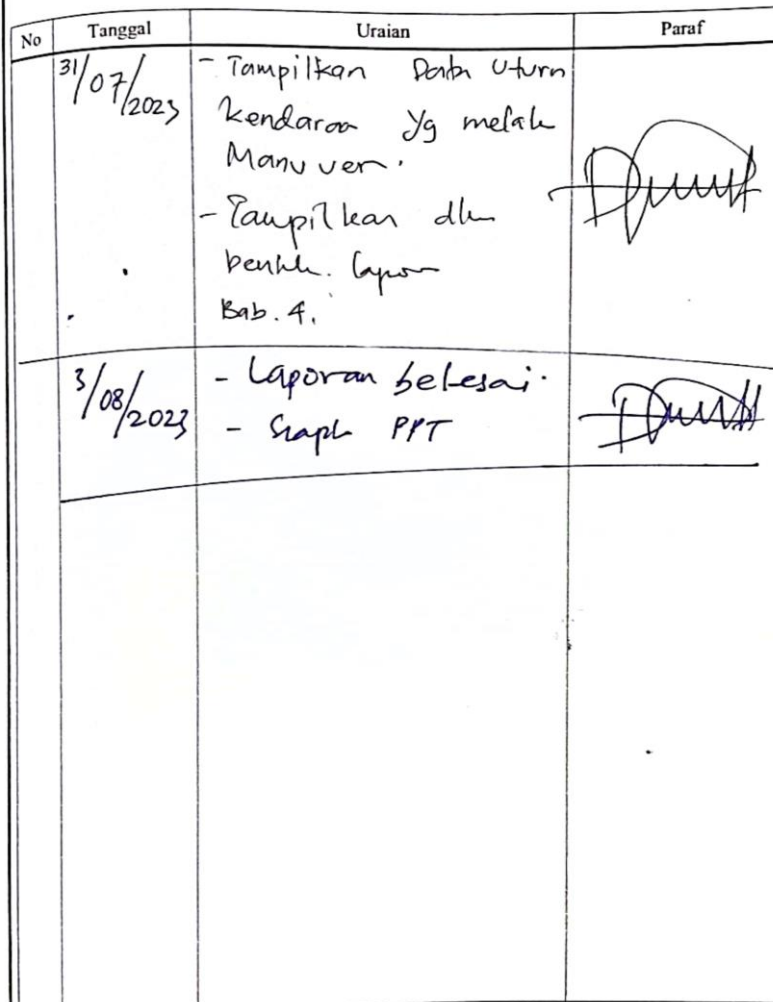 No Tanggal Uraian Paraf
31/07/2023 - Tampilkan Data Uturn
kendaraan yg melak
Manuver.
- Tampilkan dlm
bentuk. lapor
Bab. 4.
3/08/2023 - Laporan selesai.
- Siapk PPT